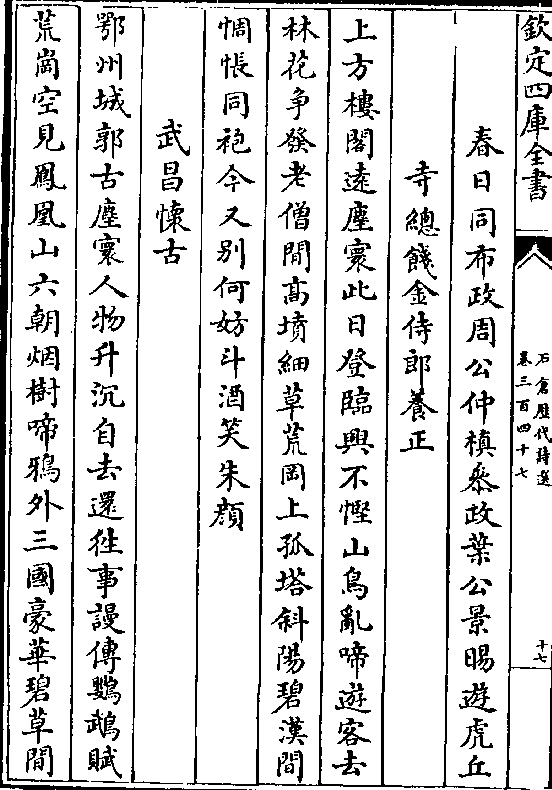 欽定四庫全書
石倉歷代詩選
卷三百四十七
十七
春日同布政周公仲槙叅政葉公景暘遊虎丘
寺總餞金侍郎養正
上方樓閣遠塵寰此日登臨興不慳山鳥亂啼遊客去
林花爭發老僧間高墳細草荒岡上孤塔斜陽碧漢間
惆悵同袍今又别何妨斗酒笑朱顔
武昌懷古
鄂州城郭古塵寰人物升沉自去還徃事謾傳鸚鵡賦
荒崗空見鳳凰山六朝烟樹啼鴉外三國豪華碧草間